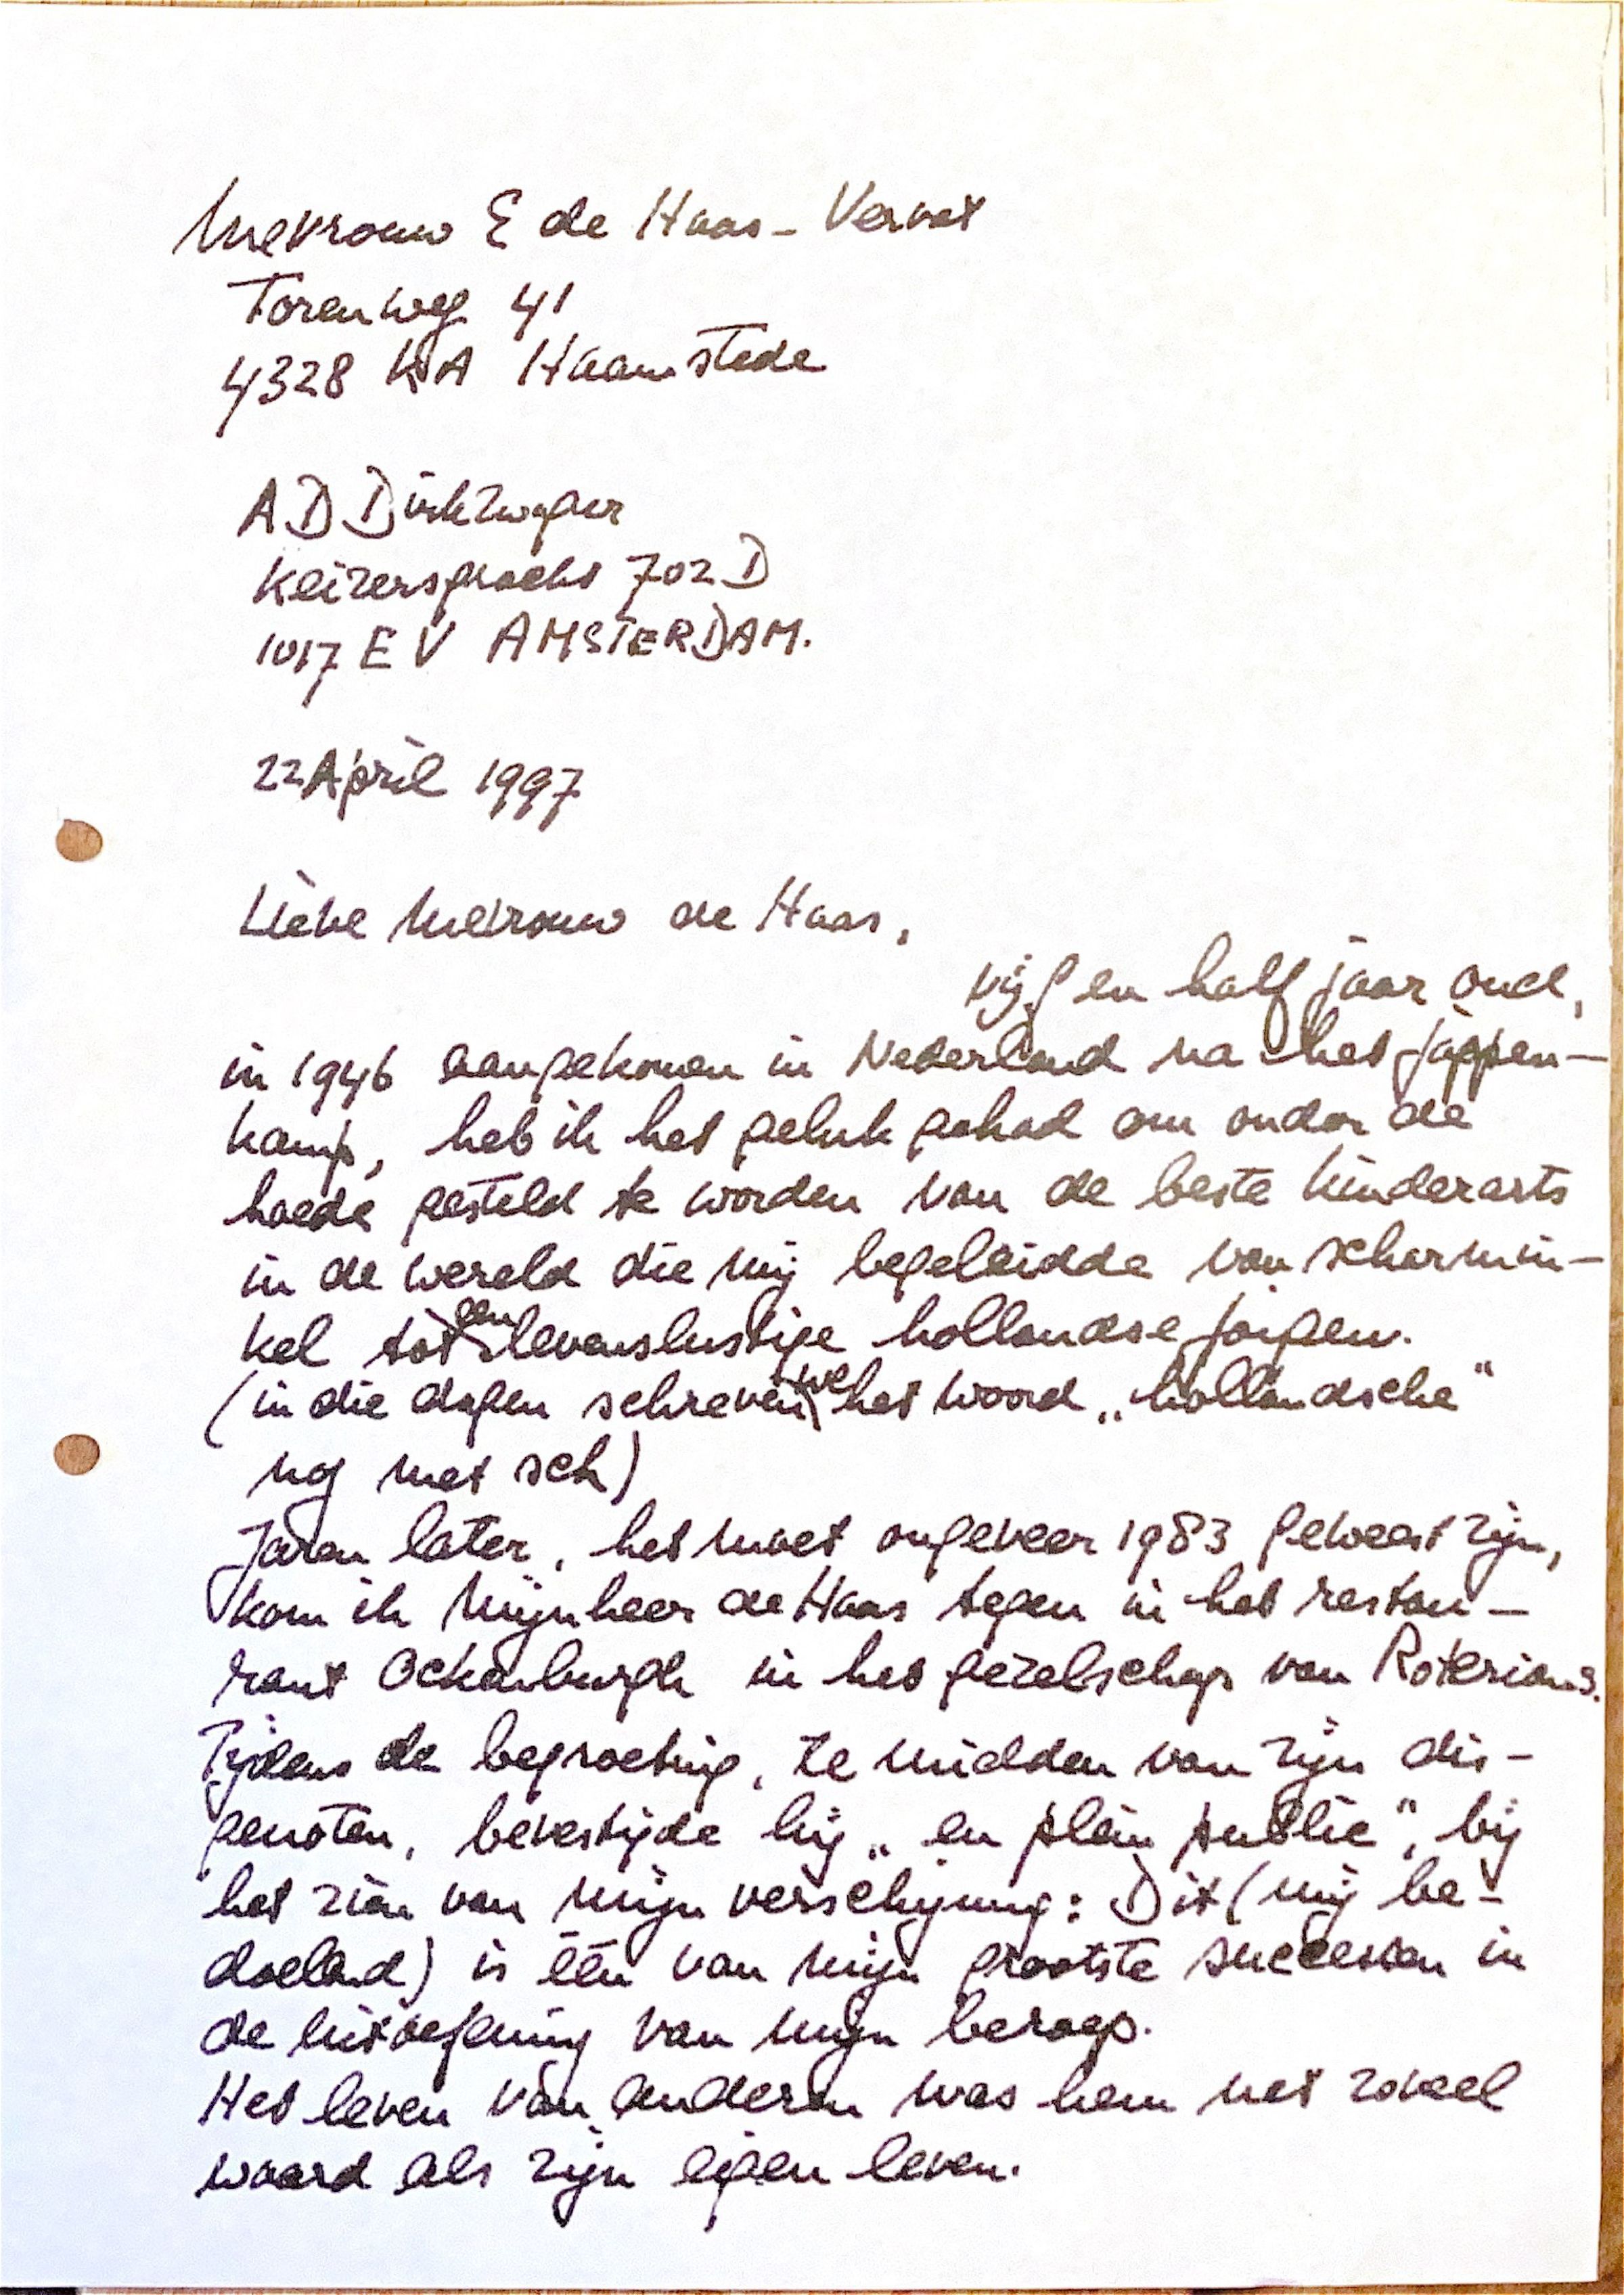 Mevrouw E de Haas - Vervat
Torenweg 41
4328 KA Haamstede
A D Dirkzwager
Keizersgracht 702 D
1017 EV AMSTERDAM.
22 April 1997
Lieve Mevrouw de Haas,
vijf en half jaar oud,
in 1946 aangekomen in Nederland na het jappen-
kamp, heb ik het geluk gehad om onder de
hoede gesteld te worden van de beste kinderarts
in de wereld die mij begeleidde van scharmin-
kel tot een levenslustige hollandse jongen.
(in die dagen schreven we het woord „hollandsche"
nog met sch)
Jaren later, het moet ongeveer 1983 geweest zijn,
kom ik Mijnheer de Haas tegen in het restau-
rant Ockenburgh in het gezelschap van Roterians.
Tijdens de begroeting, te midden van zijn dis-
genoten, bevestigde hij „en plein public", bij
het zien van mijn verschijning: Dit (mij be-
doelend) is één van mijn grootste successen in
de uitoefening van mijn beroep.
Het leven van anderen was hem net zoveel
waard als zijn eigen leven.